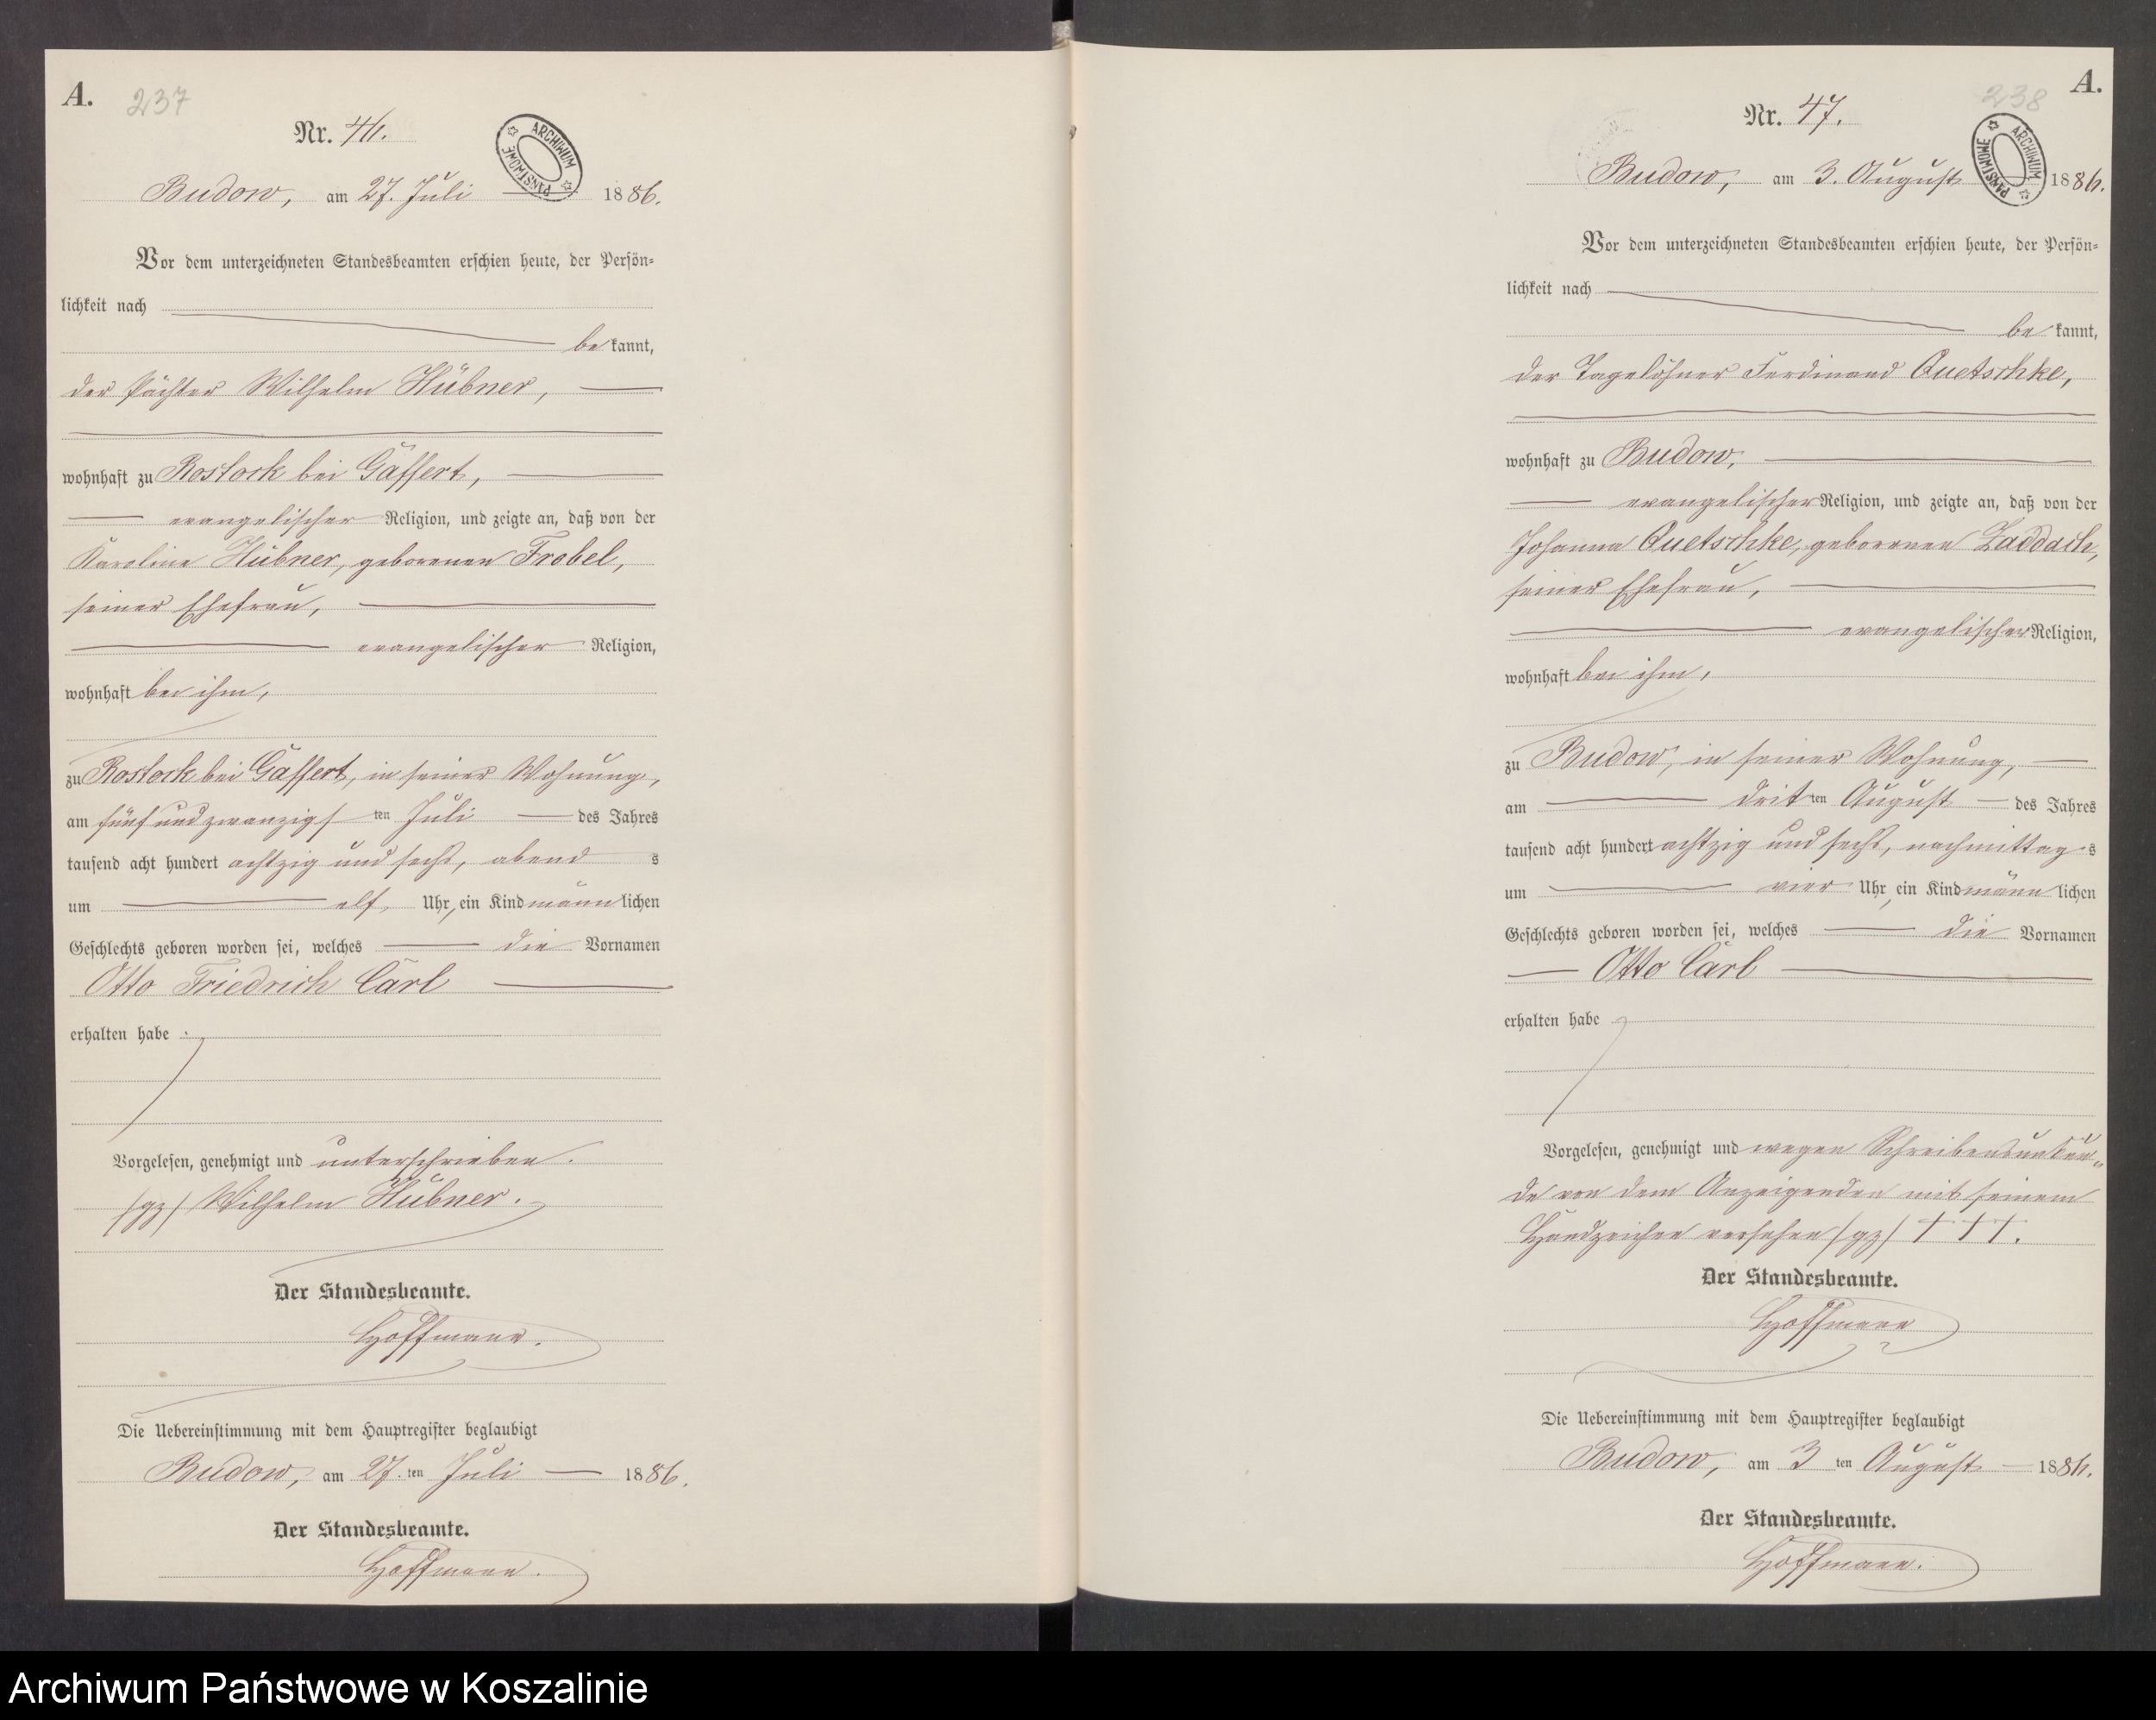 A.
237
Nr. 46.
ARCHIWUM PAŃSTWOWE
Budow, am 27. Juli 1886.
Vor dem unterzeichneten Standesbeamten erschien heute, der Persön=
lichkeit nach
be kannt,
der Pächter Wilhelm Hübner,
wohnhaft zu Rostock bei Gaffert,
evangelischer Religion, und zeigte an, daß von der
Karoline Hübner, geborenen Frobel,
seiner Ehefrau,
evangelischer Religion,
wohnhaft bei ihm,
zu Rostock bei Gaffert, in seiner Wohnung,
am fünf und zwanzigs ten Juli des Jahres
tausend acht hundert achtzig und sechs, abend s
um elf Uhr, ein Kind männ lichen
Geschlechts geboren worden sei, welches die Vornamen
Otto Friedrich Carl
erhalten habe.
Vorgelesen, genehmigt und unterschrieben.
(gz) Wilhelm Hübner.
Der Standesbeamte.
Hoffmann.
Die Uebereinstimmung mit dem Hauptregister beglaubigt
Budow, am 27. ten Juli 1886.
Der Standesbeamte.
Hoffmann.
A.
238
Nr. 47.
ARCHIWUM PAŃSTWOWE
Budow, am 3. August 1886.
Vor dem unterzeichneten Standesbeamten erschien heute, der Persön=
lichkeit nach
be kannt,
der Tagelöhner Ferdinand Quetschke,
wohnhaft zu Budow,
evangelischer Religion, und zeigte an, daß von der
Johanna Quetschke, geborenen Zaddach,
seiner Ehefrau,
evangelischer Religion,
wohnhaft bei ihm,
zu Budow, in seiner Wohnung,
am drit ten August des Jahres
tausend acht hundert achtzig und sechs, nachmittag s
um vier Uhr, ein Kind männ lichen
Geschlechts geboren worden sei, welches die Vornamen
Otto Carl
erhalten habe
Vorgelesen, genehmigt und wegen Schreibensunkun„
de von dem Anzeigenden mit seinem
Handzeichen versehen (gz) + + +.
Der Standesbeamte.
Hoffmann
Die Uebereinstimmung mit dem Hauptregister beglaubigt
Budow, am 3 ten August 1886.
Der Standesbeamte.
Hoffmann.
Archiwum Państwowe w Koszalinie